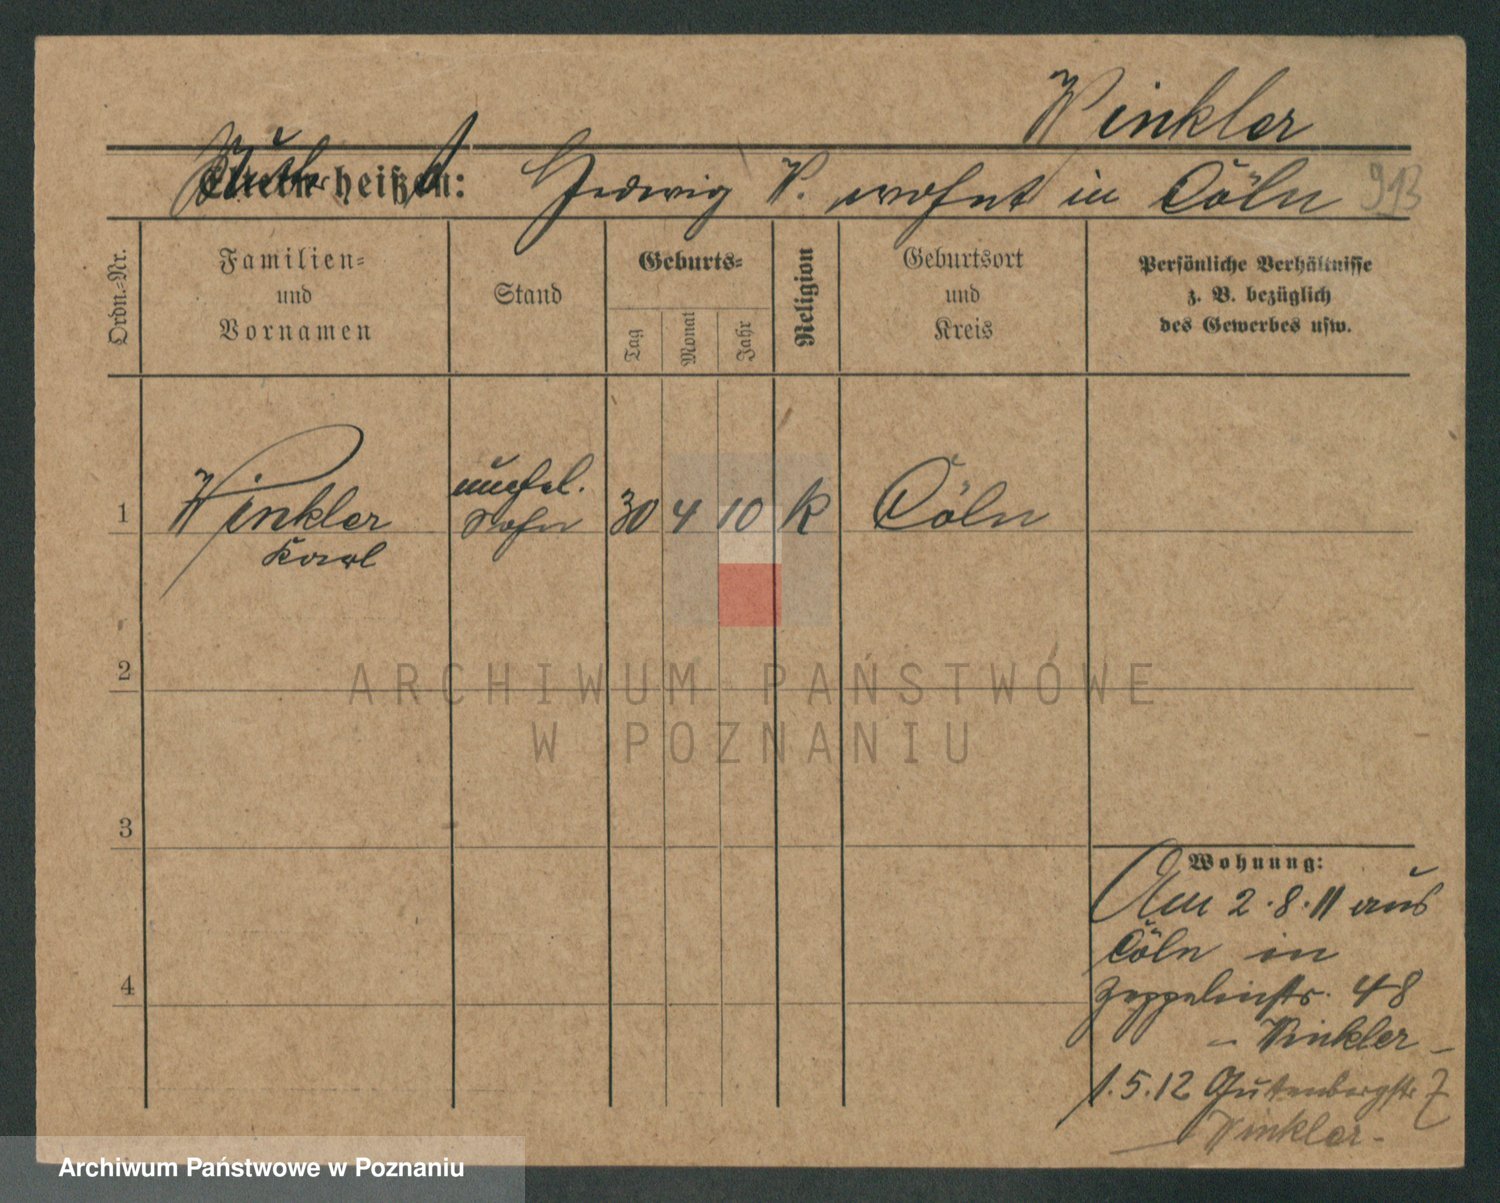 Winkler
Mutter heißt:
Hedwig W. wohnt in Cöln 913
Ordn.-Nr.
Familien-
und
Vornamen
Stand
Geburts-
Tag
Monat
Jahr
Religion
Geburtsort
und
Kreis
Persönliche Verhältnisse
z. B. bezüglich
des Gewerbes usw.
1 Winkler
Karl
unehel.
Sohn
30 4 10 k Cöln
2
3
4
Wohnung:
Am 2.8.11 aus
Cöln in
Zeppelinstr. 48
- Winkler -
1.5.12 Gutenbergstr 7
- Winkler -
ARCHIWUM PAŃSTWOWE
W POZNANIU
Archiwum Państwowe w Poznaniu